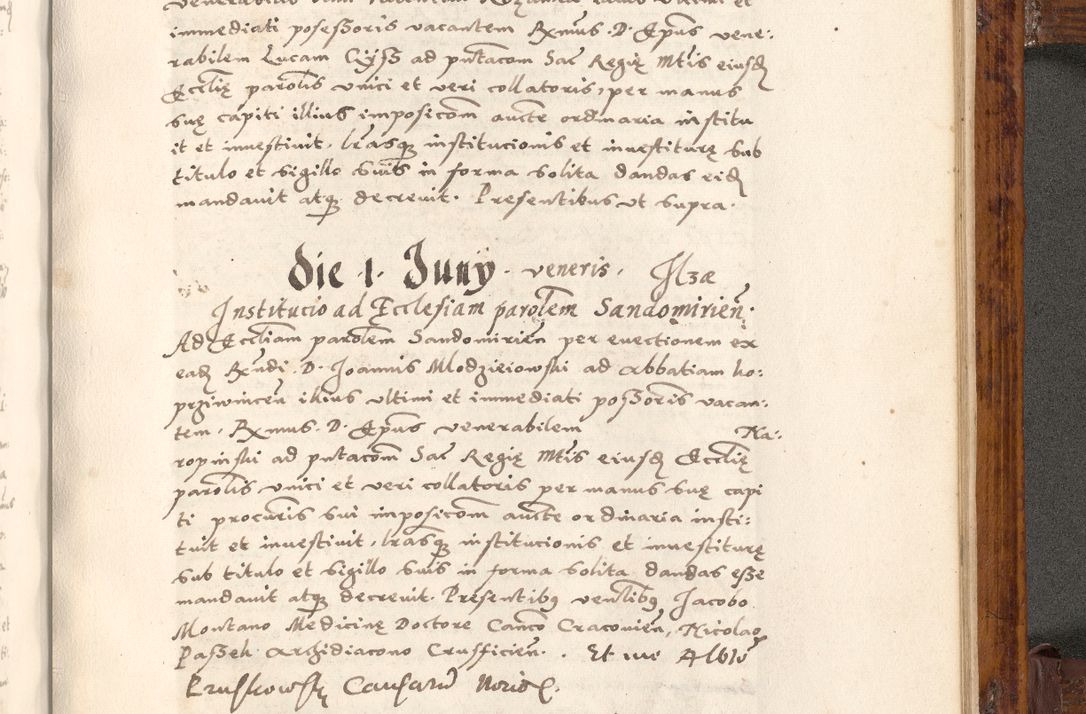 immediati possessoris vacantem Rxmus D. Epus vene:
rabilem Lucam Cÿss ad pntacom Sac Regię Mtis eiusd
Eccłię parolis vnici et veri collatoris, per manus
suę capiti illius imposicom aucte ordinaria institu
it et inuestiuit, lrasq institucionis et inuestiturę sub
titulo et sigillo suis in forma solita dandas eid
mandauit atq decreuit. Presentibus vt supra.
Die 1 Junÿ veneris, Ilzæ
Institucio ad Ecclesiam parolem Sandomirien.
Ad Eccliam parolem Sandomirien per euectionem ex
ead Rndi D. Joannis Mlodzieiowski ad abbatiam ko:
przÿwnicen illius vltimi et immediati possoris vacan:
tem, Rxmus D. Epus venerabilem Na:
ropinski ad pntacom Sac Regię Mtis eiusd Eccłię
parolis vnici et veri collatoris per manus suę capi
ti procuris sui imposicom aucte ordinaria insti:
tuit et inuestiuit, lrasq institucionis et inuestiturę
sub titulo et sigillo suis in forma solita dandas esse
mandauit atq decreuit. Presentibq ventibq Jacobo
Montano Medicinę Doctore Canco Cracouien, Nicolao
Passek Archidiacono Crusficien. Et me Albto
Pruskowskÿ Causarū Norio.